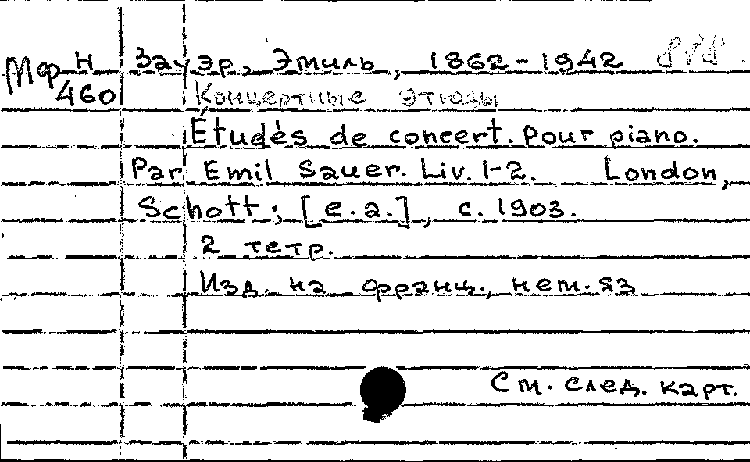 Мф Н Зауэр, Эмиль, 1862-1942
460 Концертные этюды
Etudès de concert. Pour piano.
Par Emil Sauer. Liv. 1-2. London,
Schott; [e.a.], c. 1903.
2 тетр.
Изд. на франц., нем. яз
См. след. карт.